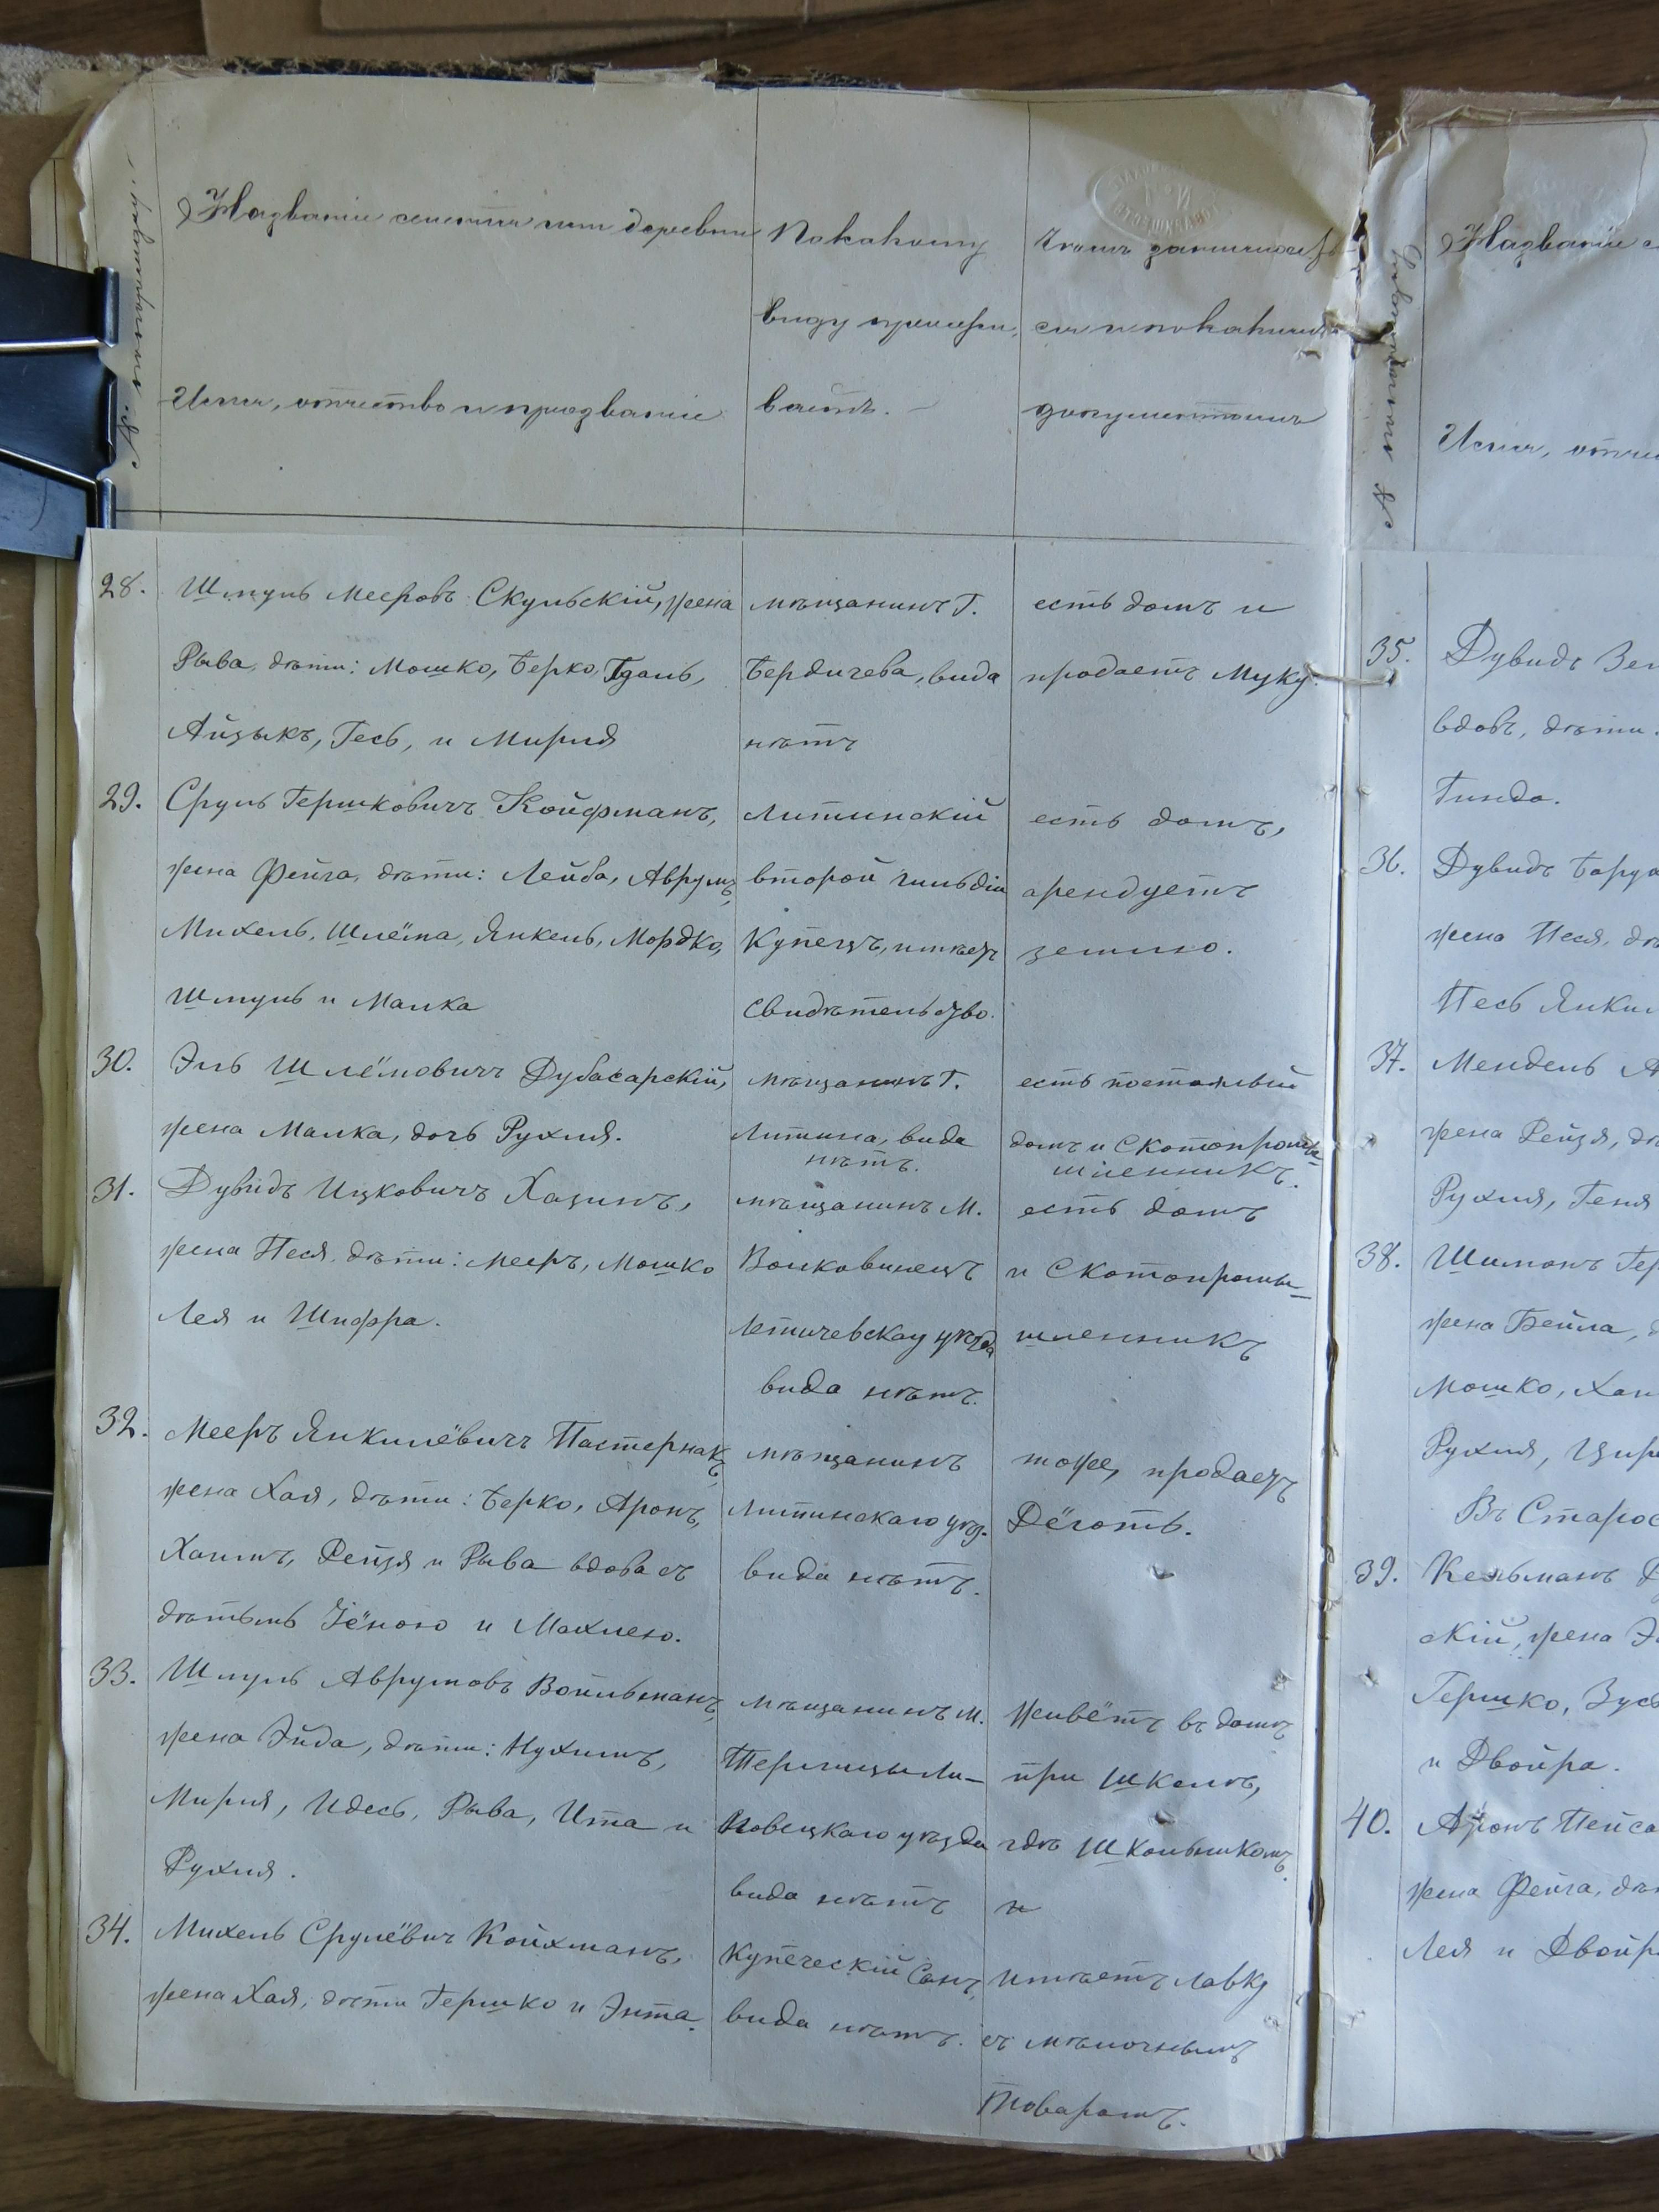 №
Названіе селенія или деревни
Имя, отчество и прозваніе
По какому
виду прожи-
ваетъ.
Чемъ занимает-
ся и по какимъ
документамъ
28.
Шмуль Мееровъ Скульскій, жена
Рыва, дѣти: Мошко, Берко,
Айзыкъ, Гесь, и Мирля
мѣщанинъ Г.
Бердичева, вида
нѣтъ
есть домъ и
продаетъ Муку.
29.
Сруль Гершковичъ Койфманъ,
жена Фейга, дѣти: Лейба, Аврумъ,
Михель, Шлёма, Янкель, Мордко,
Шмуль и Малка
Литинскій
второй гильдіи
Купецъ, имѣетъ
свидѣтельство.
есть домъ,
арендуетъ
землю.
30.
Эль Шлёмовичъ Дубасарскій,
жена Малка, дочь Рухля.
мѣщанинъ Г.
Литина, вида
нѣтъ.
есть постоялый
домъ и Скотопромы-
шленникъ.
31.
Дувидъ Ицковичъ Хазинъ,
жена Песя, дѣти: Мееръ, Мошко
Лея и Шифра.
мѣщанинъ М.
Волковинецъ
Летичевскаго уѣзда
вида нѣтъ.
есть домъ
и Скотопромы-
шленникъ
32.
Мееръ Янкилёвичъ Пастернакъ,
жена Хая, дѣти: Берко, Аронъ,
Хаимъ, Рейзя и Рыва вдова съ
дѣтьмъ Іёною и Махлею.
мѣщанинъ
Литинскаго уѣз.
вида нѣтъ.
тоже, продаетъ
Дёготь.
33.
Шмуль Аврумовъ Войльманъ,
жена Эйда, дѣти: Нухимъ,
Мирля, Идесь, Рыва, Ита и
Рухля.
мѣщанинъ М.
вида нѣтъ
Живётъ въ домѣ
при Школѣ,
гдѣ Школьникомъ.
и
34.
Михель Срулёвич Койхманъ,
жена Хая, дѣти Гершко и Энта.
Купеческій Сынъ,
вида нѣтъ.
имѣетъ лавку
съ мѣлочнымъ
Товаромъ.
№
Названіе
Имя,
35.
Дувидъ
вдовъ, дѣти:
Гинда.
36.
Дувидъ
жена Песя,
Песь
37.
Мендель
жена Рейзя,
Рухля, Геня
38.
Шимонъ
жена Бейла,
Мошко,
Рухля,
Въ
39.
Кельманъ
скій, жена
Гершко,
и Двойра.
40.
Аронъ
жена Фейга,
Лея и